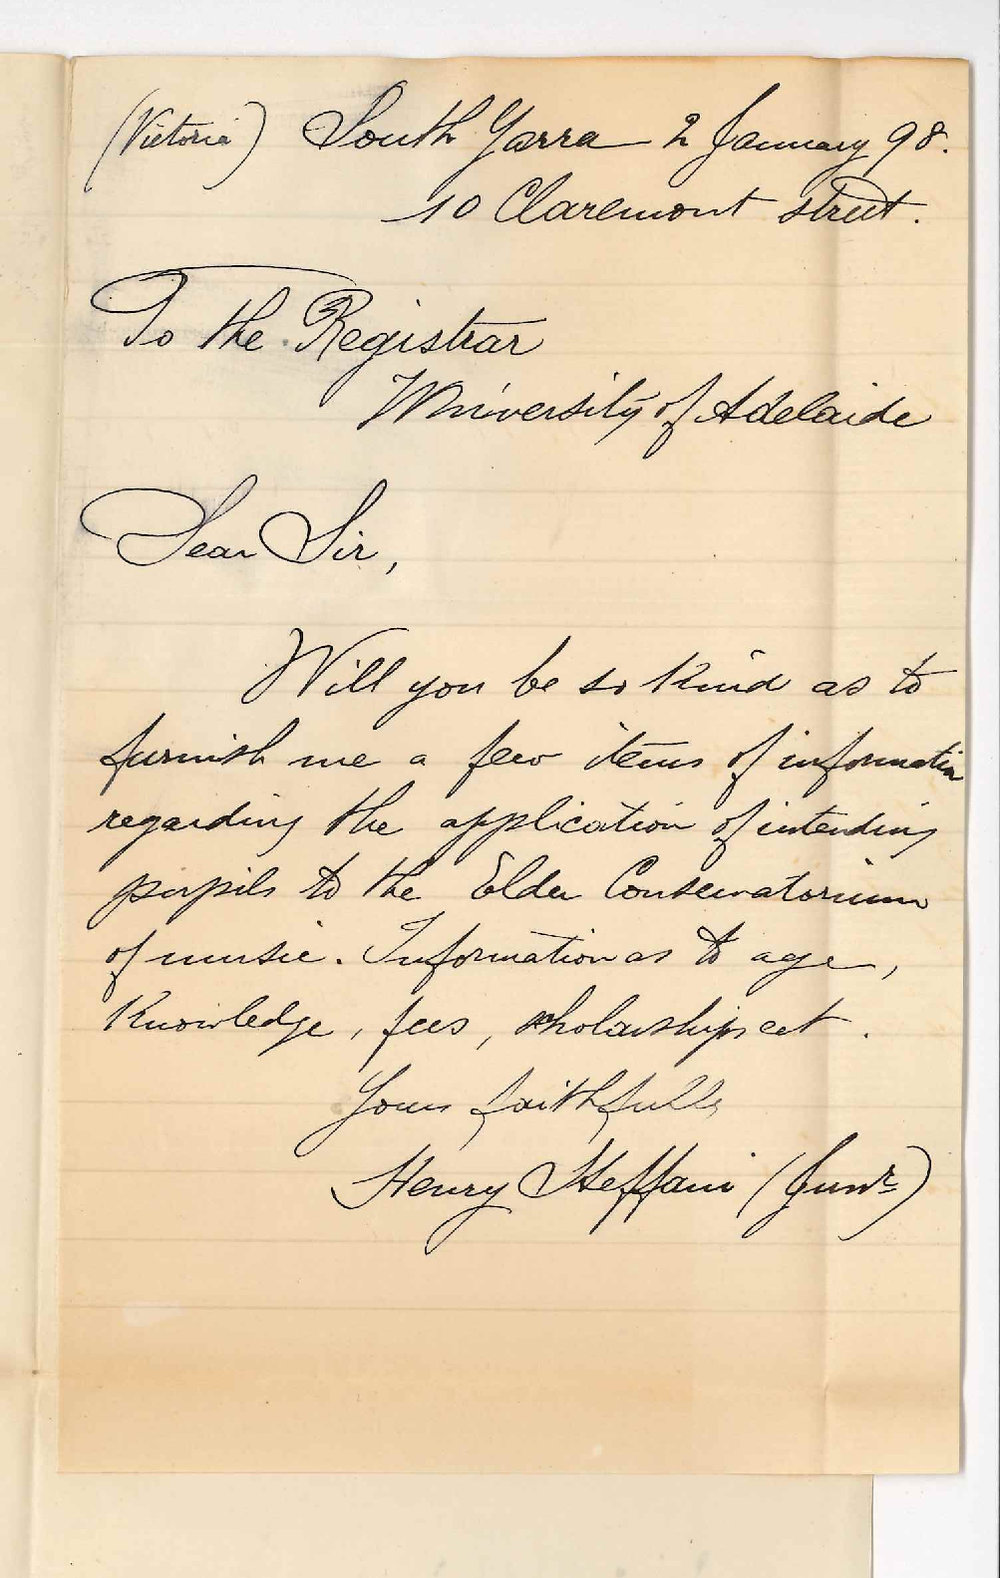 (Victoria) South Yarra 2 January 98.
10 Claremont street.
To the Registrar
University of Adelaide
Dear Sir,
Will you be so kind as to
furnish me a few items of information
regarding the application of intending
pupils to the Elder Conservatorium
of music. Information as to age,
Knowledge, fees, scholarships ect.
Yours faithfully
Henry Steffani (Junr)